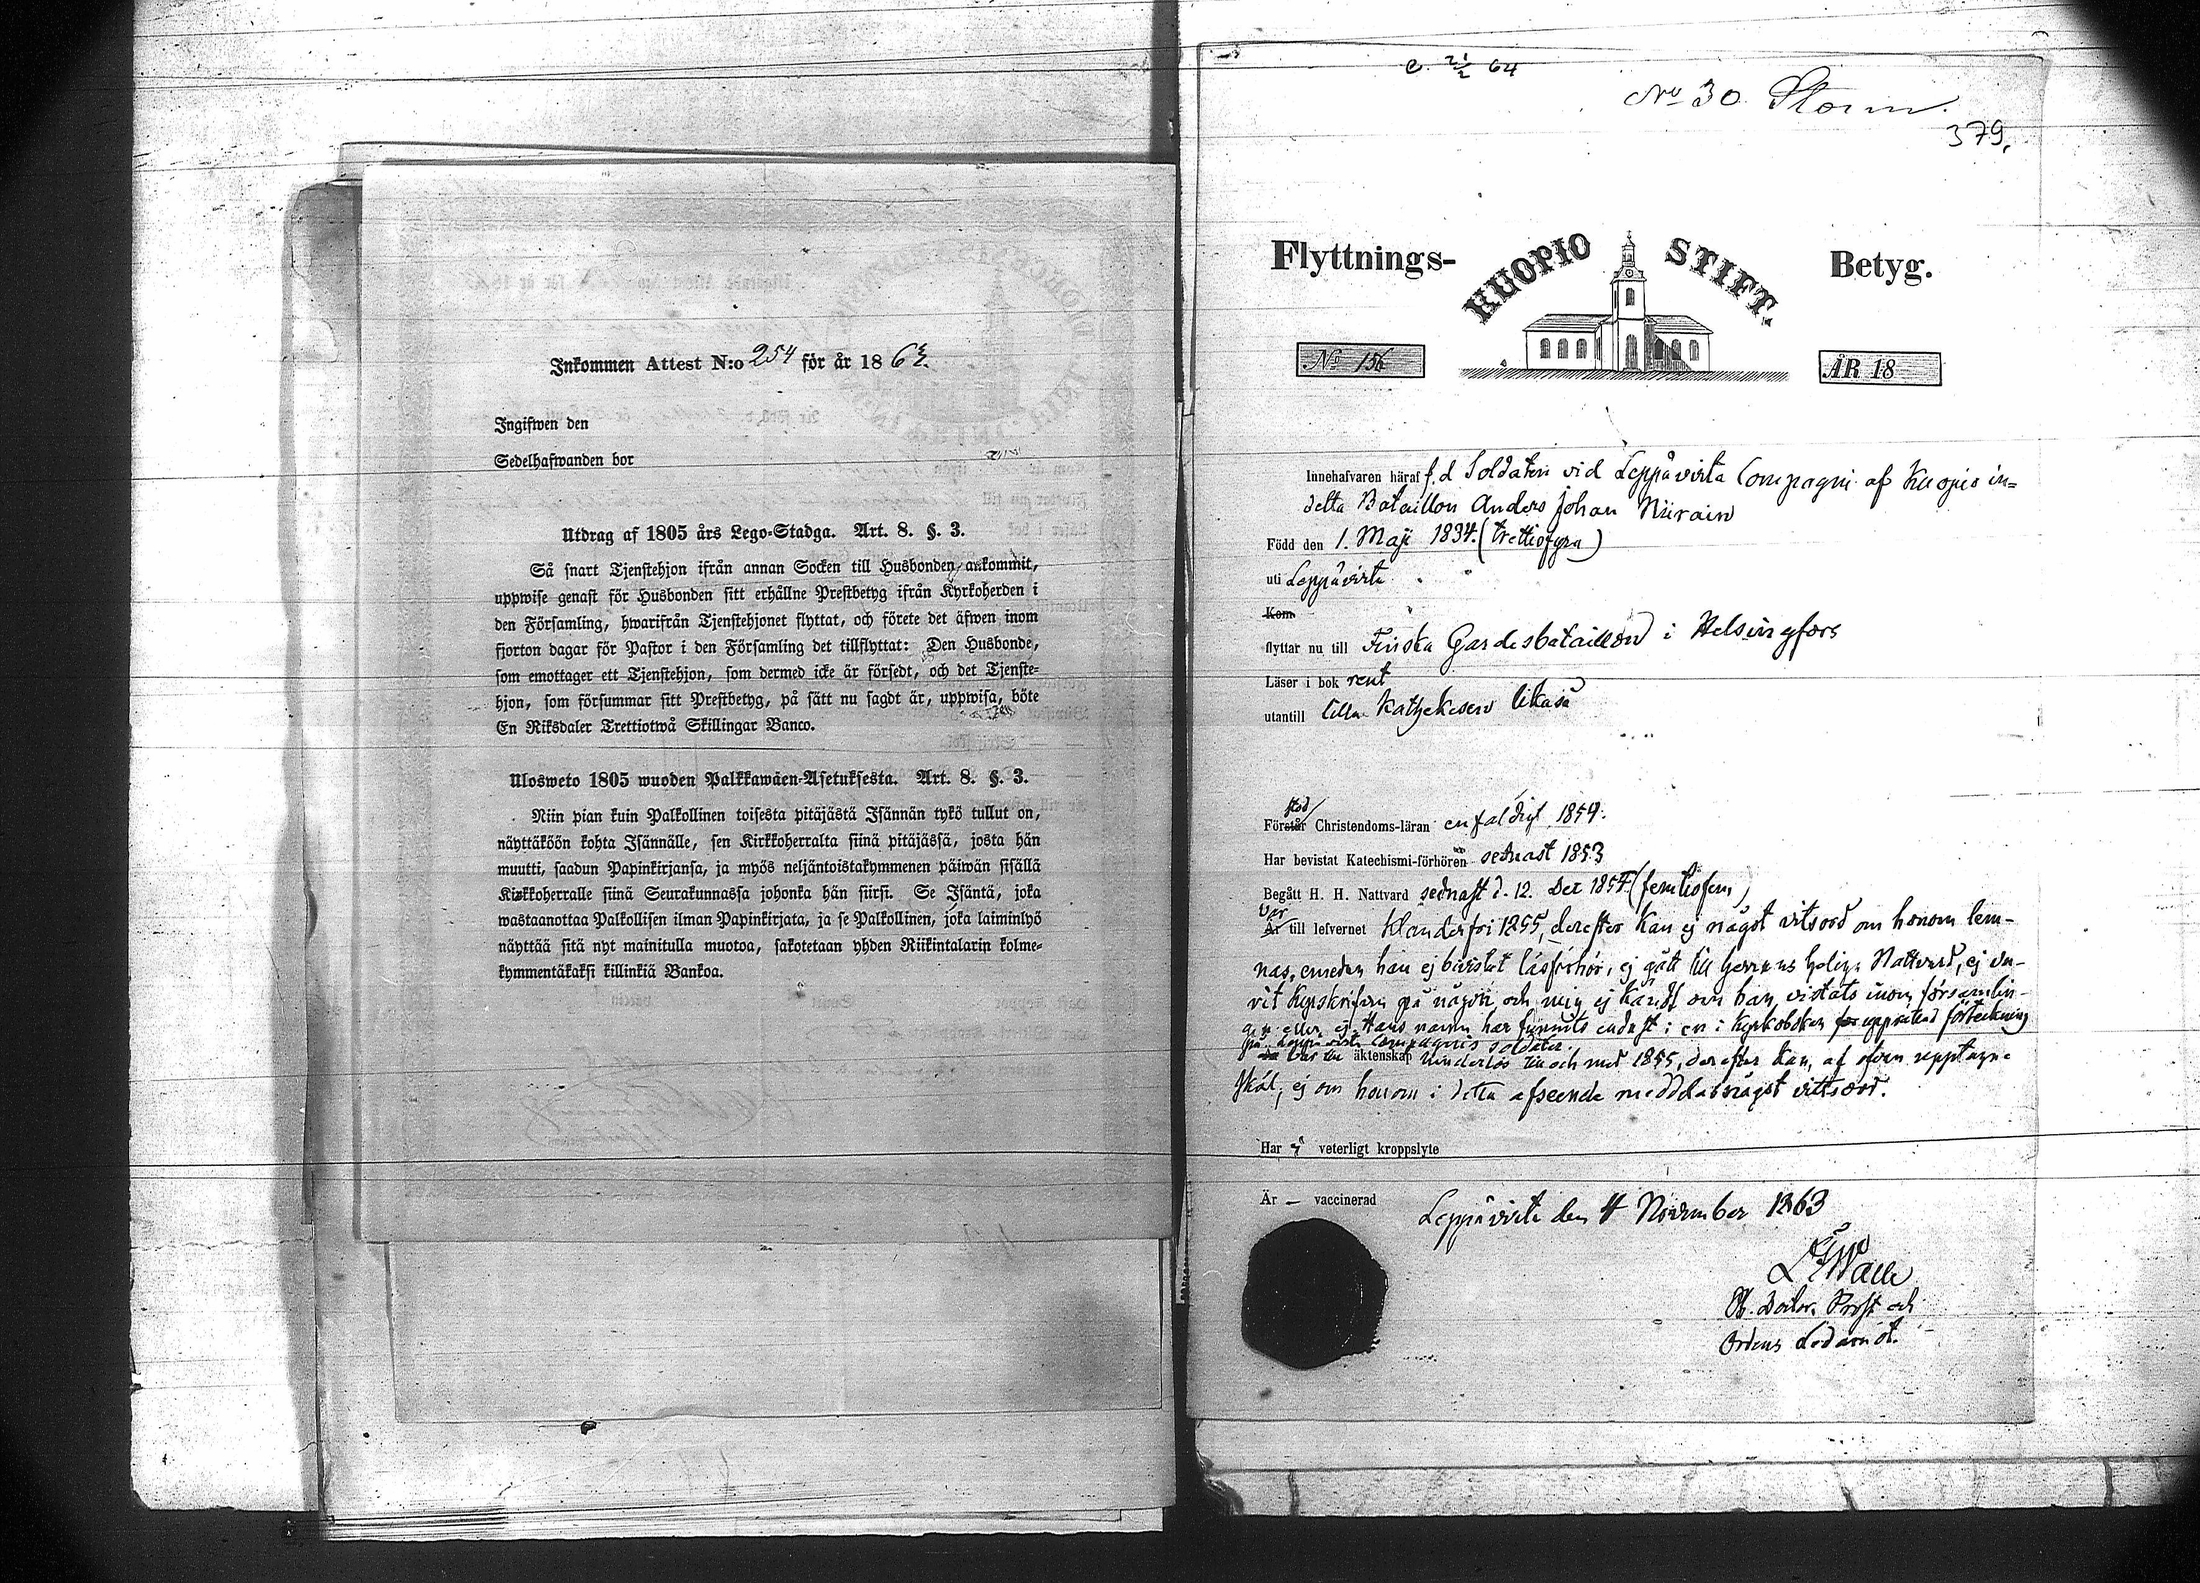 Inkommen Attest N:o 254 för år 186
Ingifwen den
Sedelhafwanden bor
Utdrag af 1805 års Lego-Stadga. Art. 8. §. 3.
Så snart Tjenstehjon ifrån annan Socken till Husbonden ankommit,
uppwise genast för Husbonden sitt erhållne Prestbetyg ifrån Kyrkoherden i
den Församling, hwarifrån Tjenstehjonet flyttat, och förete det äfwen inom
fjorton dagar för Pastor i den Församling det tillflyttat: Den Husbonde,
som emottager ett Tjenstehjon, som dermed icke är försedt, och det Tjenste-
hjon, som försummar sitt Prestbetyg, på sätt nu sagdt är, uppwisa, böte
En Riksdaler Trettiotwå Skillingar Banco.
Ulosweto 1805 wuoden Palkkawäen-Asetuksesta. Art. 8. §. 3.
Niin pian kuin Palkollinen toisesta pitäjästä Isännän tykö tullut on,
näyttäköön kohta Isännälle, sen Kirkkoherralta siinä pitäjässä, josta hän
muutti, saadun Papinkirjansa, ja myös neljäntoistakymmenen päiwän sisällä
Kirkkoherralle siinä Seurakunnassa johonka hän siirsi. Se Isäntä, joka
wastaanottaa Palkollisen ilman Papinkirjata, ja se Palkollinen, joka laiminlyö
näyttää sitä nyt mainitulla muotoa, sakotetaan yhden Riikintalarin kolme-
kymmentäkaksi killinkiä Bankoa.
e. 21/2 64
No 30 Storm.
379.
Flyttnings- KUOPIO STIFT. Betyg.
No 156 ÅR 18
Innehafvaren häraf f.d Soldaten vid Leppävirta Compagni af Kuopio in=
delta Bataillon Anders Johan Niirain
Född den 1. Maji 1834. (trettiofyra)
uti Leppävirta
Kom
flyttar nu till Finska Gardesbataillon i Helsingfors
Läser i bok rent
utantill lilla Katheksen likaså
stod
Förstår Christendoms-läran enfaldigt 1854.
Har bevistat Katechismi-förhören sednast 1853
Begått H. H. Nattvard sednast d. 12. Dec 1854 (femtiofem)
Var
Är till lefvernet Klanderfri 1855, derefter kan ej något vitsord om honom lem-
nas, emedan han ej bevistat läsförhör, ej gått till Herrens heliga Nattvard, ej va-
rit kyrskrifven på någon och mig ej kändt om han vistats inom församlin-
gen eller ej. Hans namn har funnits endast i en i Kyrkoboken för upprättad förteckning
på Leppävirta Compagnis soldater.
äktenskap hinderlös till och med 1855, derefter kan, af ofvan upptagne
skäl, ej om honom i detta afseende meddelas något vittsord.
Har ej veterligt kroppslyte
Är — vaccinerad
Leppävirta den 4 November 1863
Prost och
Ordens Ledamot.